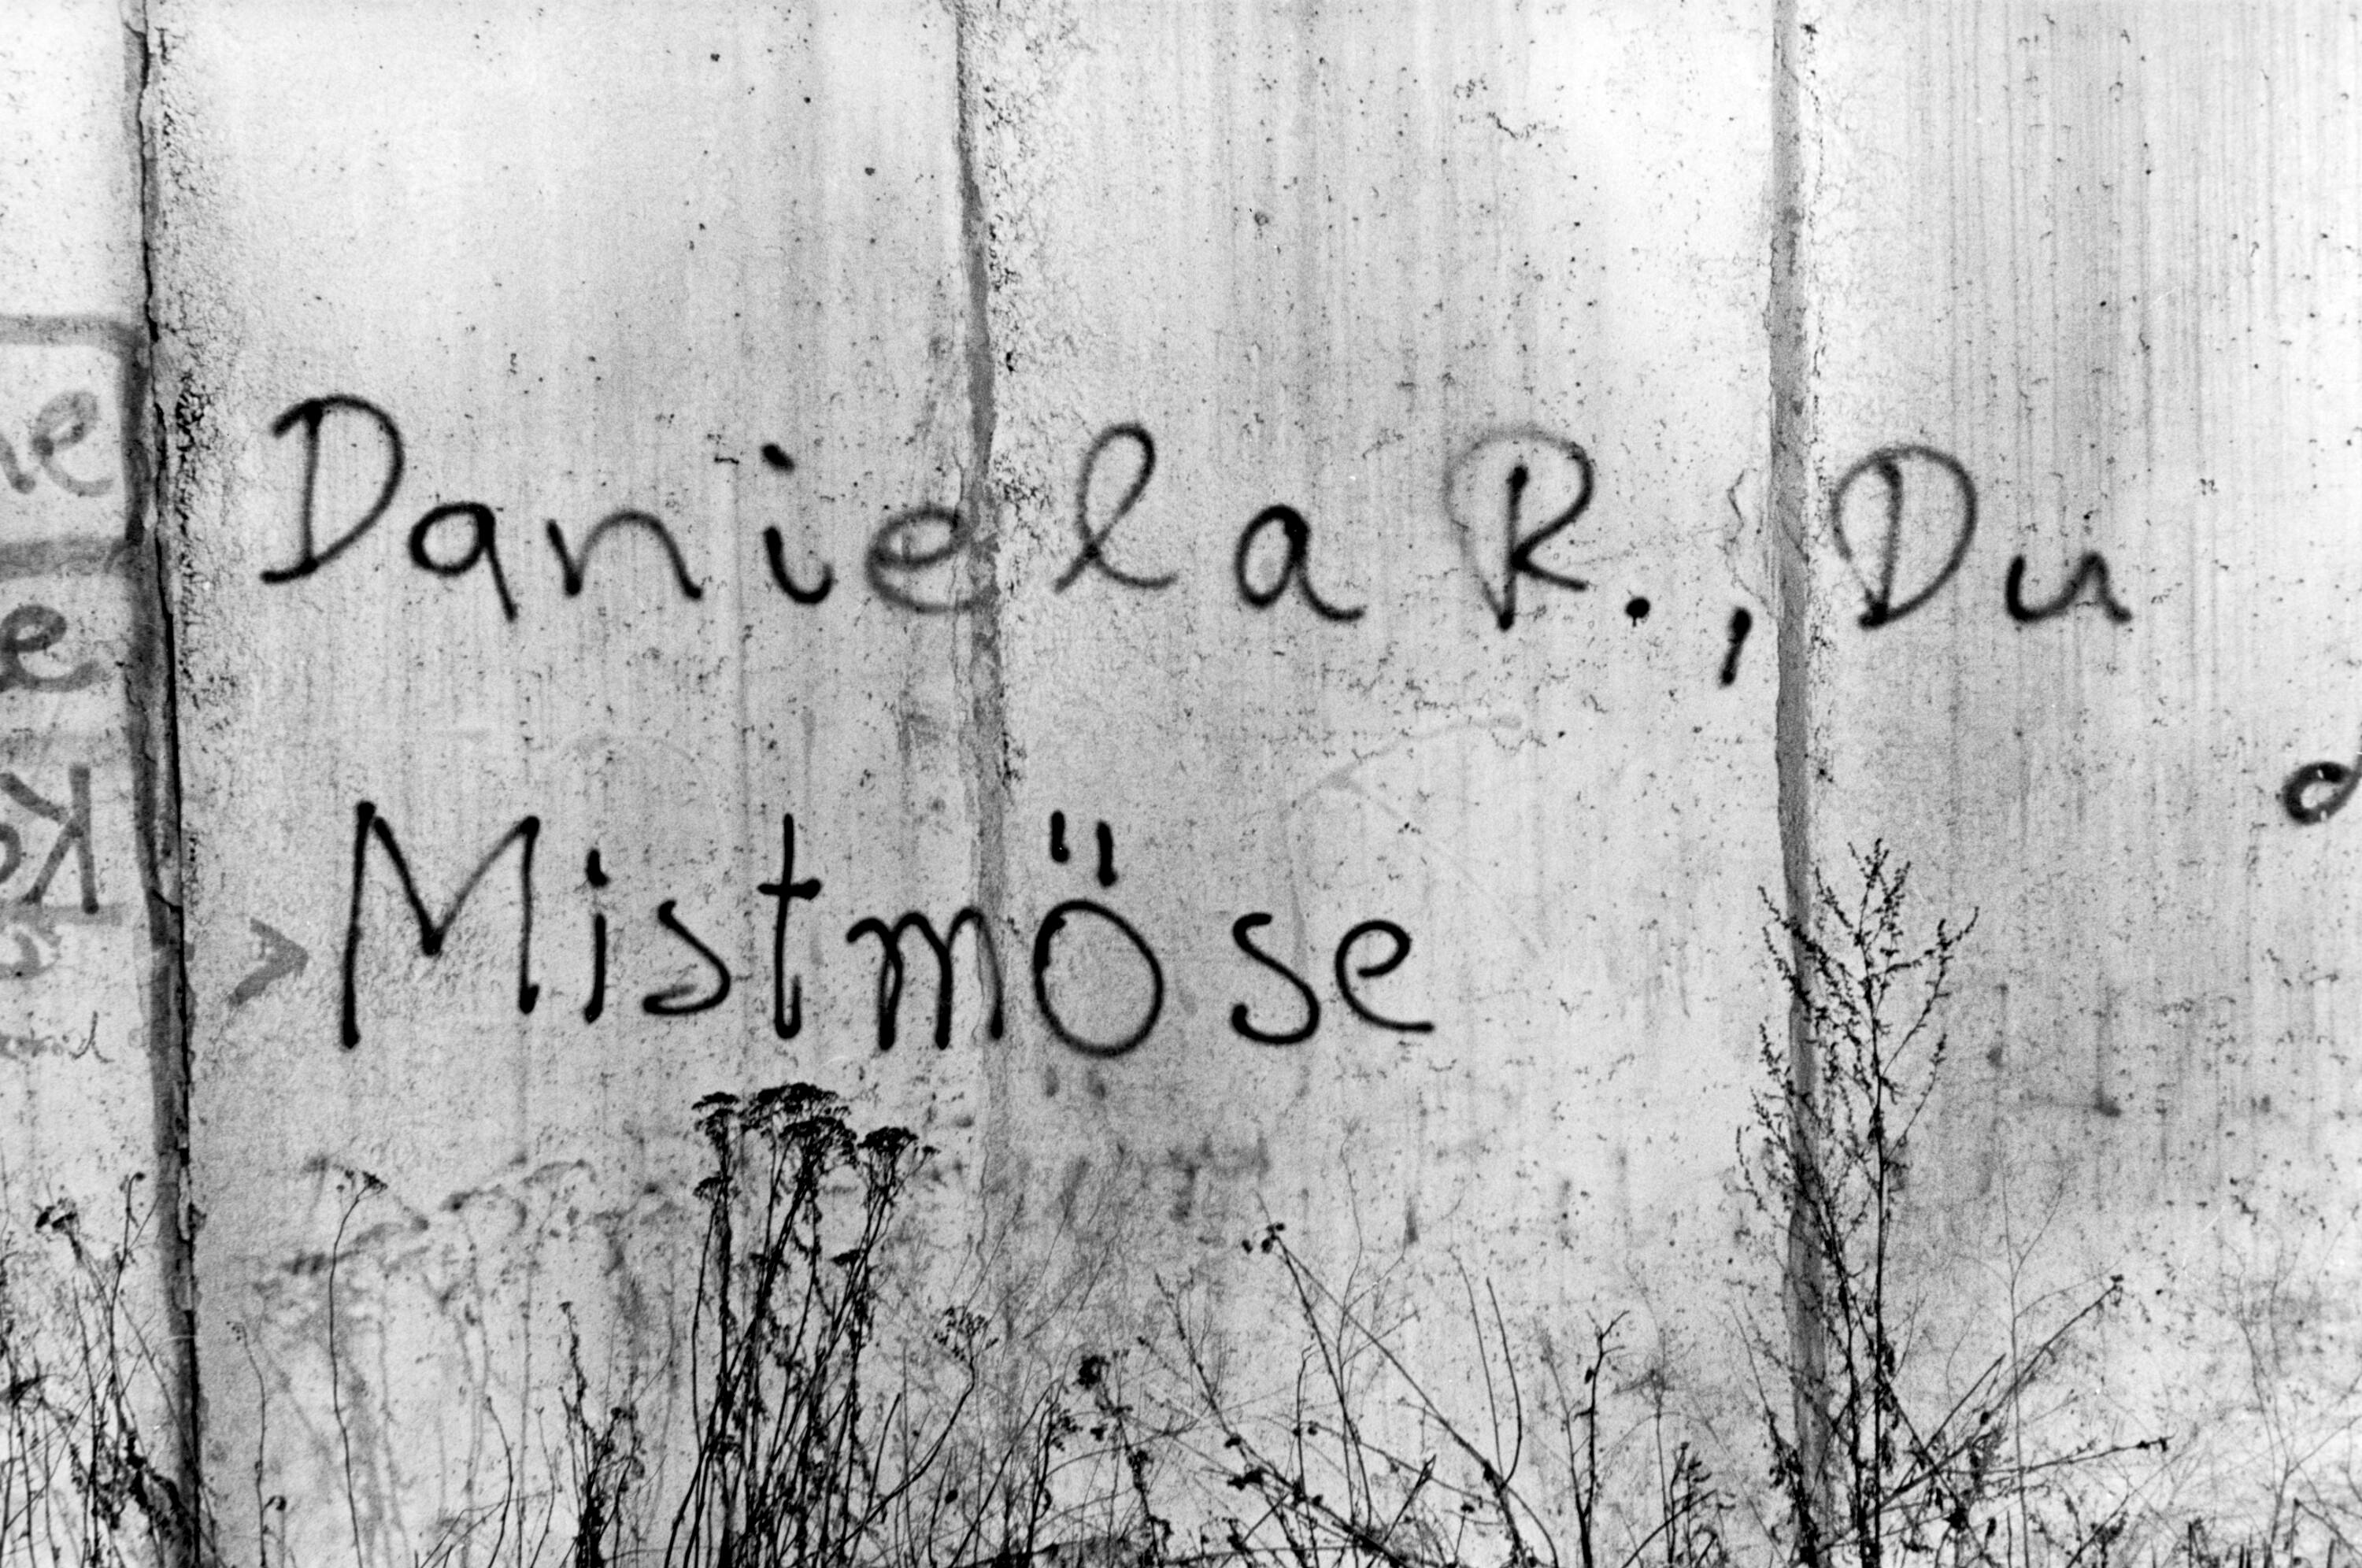 Daniela R., Du
Mistmöse